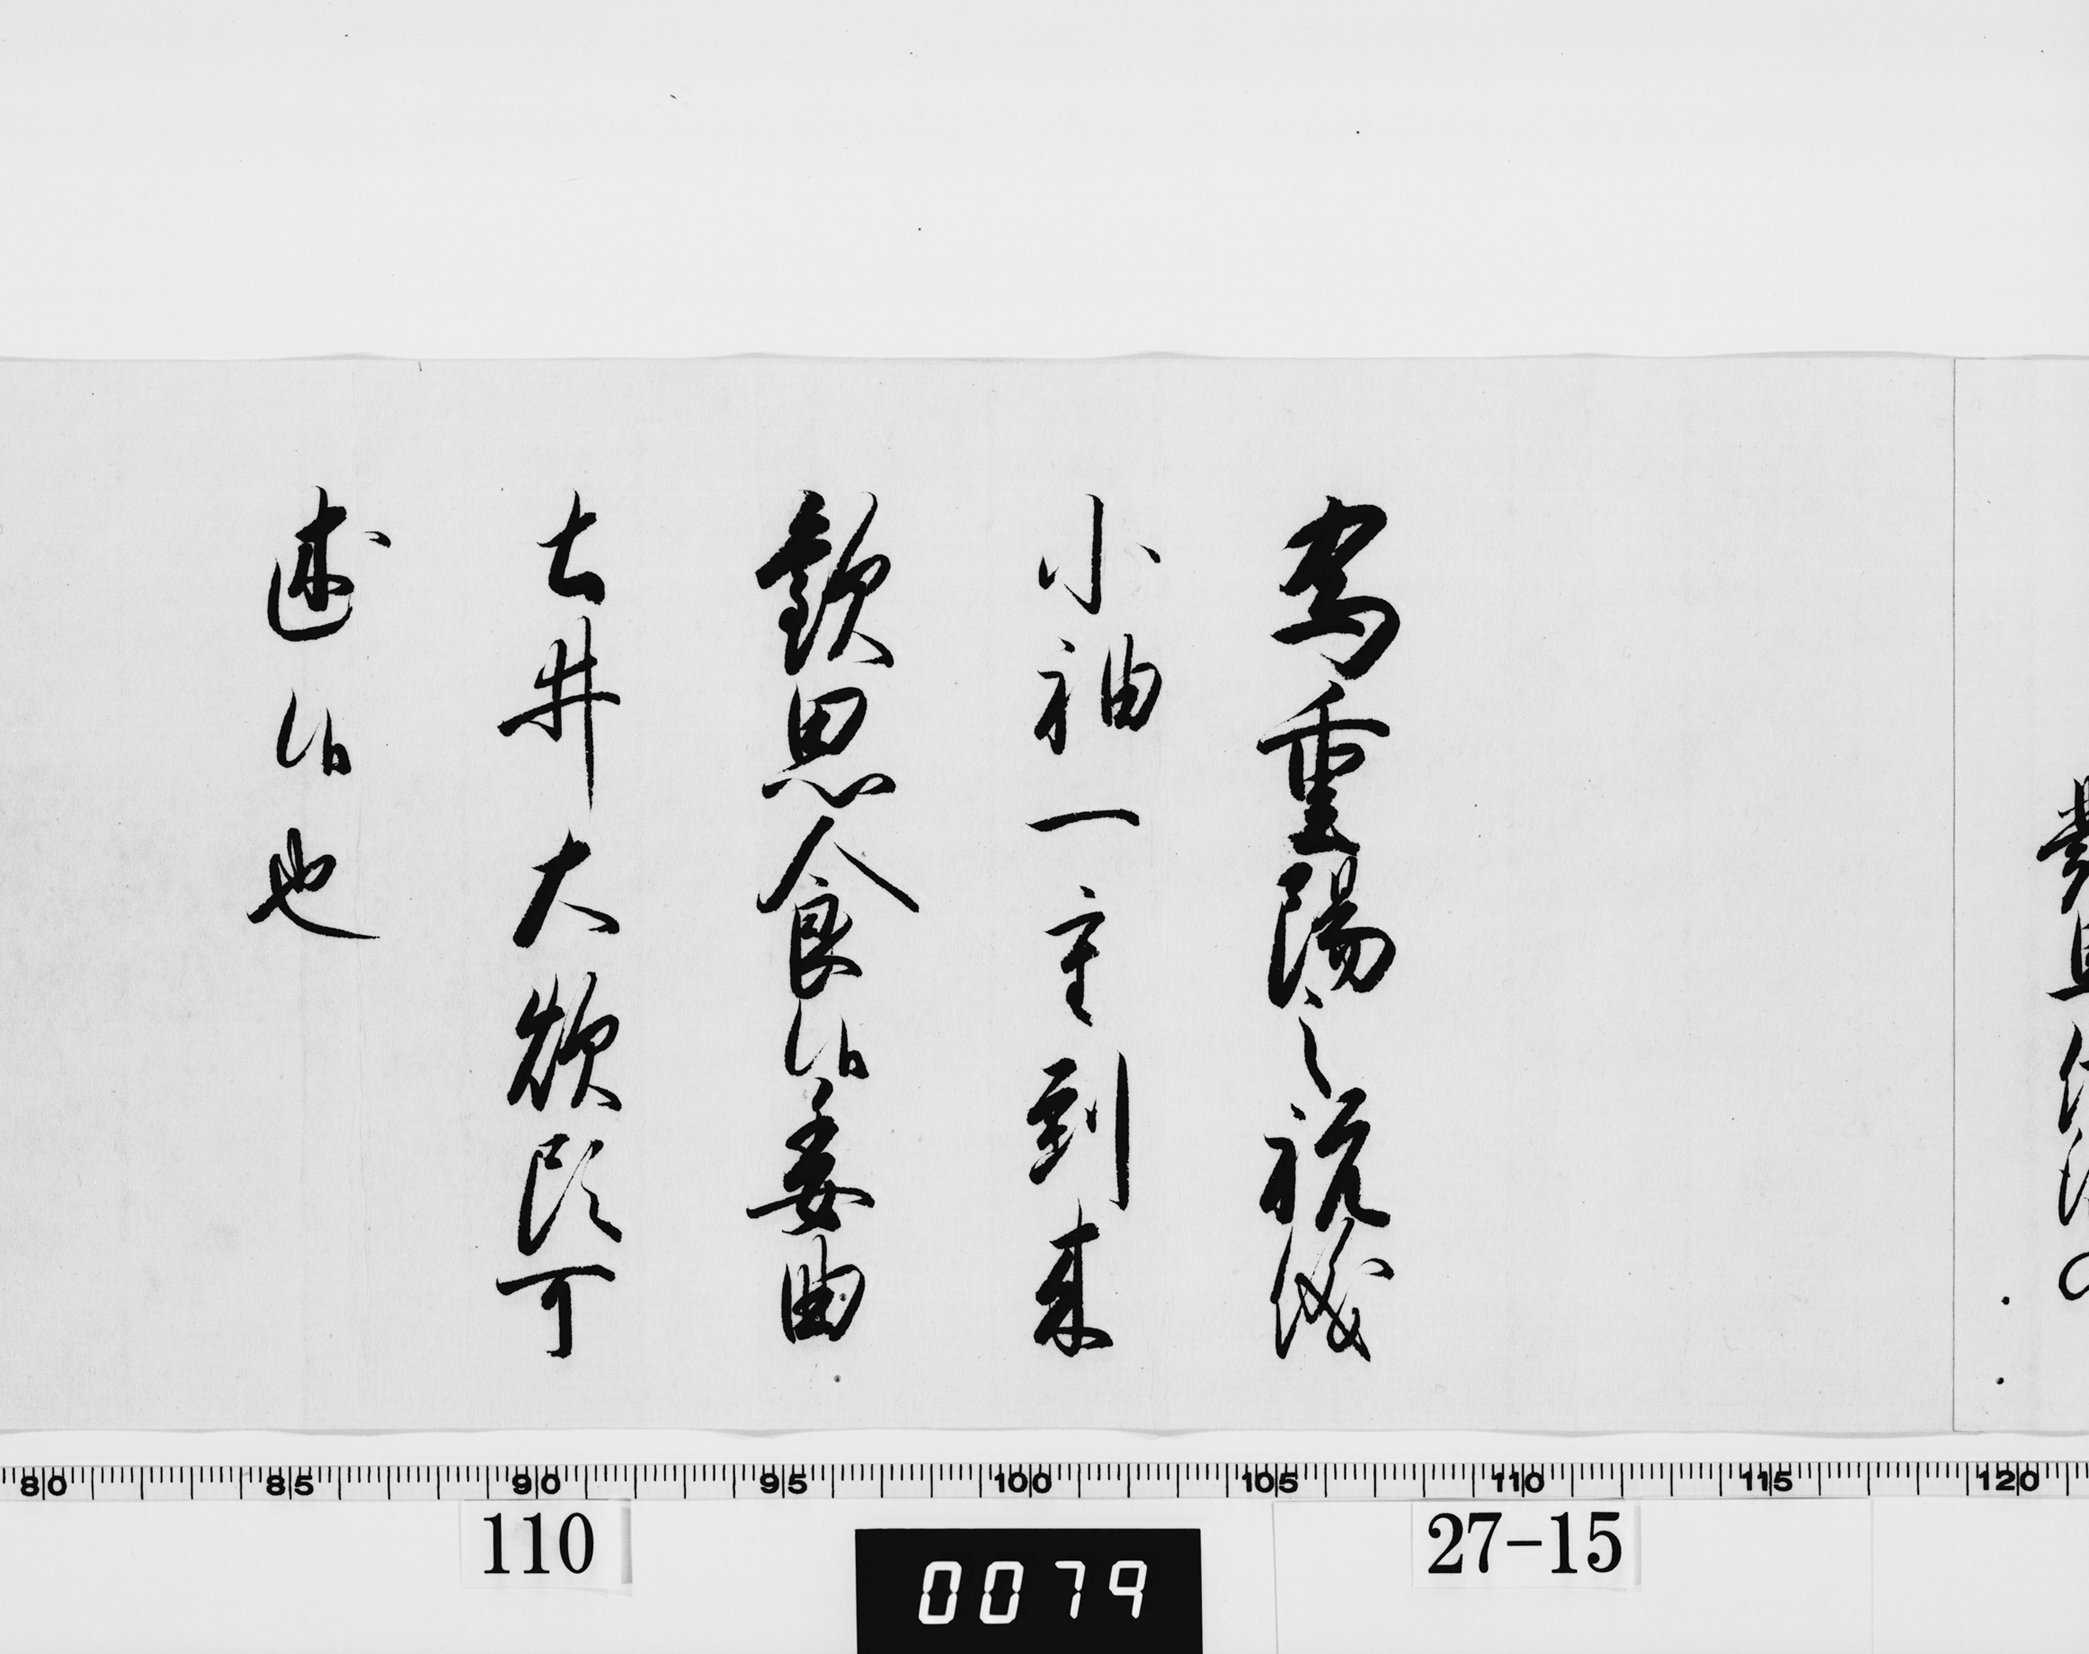 為重陽之祝儀
小袖一重到来
歓思食候委曲
土井大炊頭可
述候也
80 85 90 95 100 105 110 115 120
110
0079
27-15